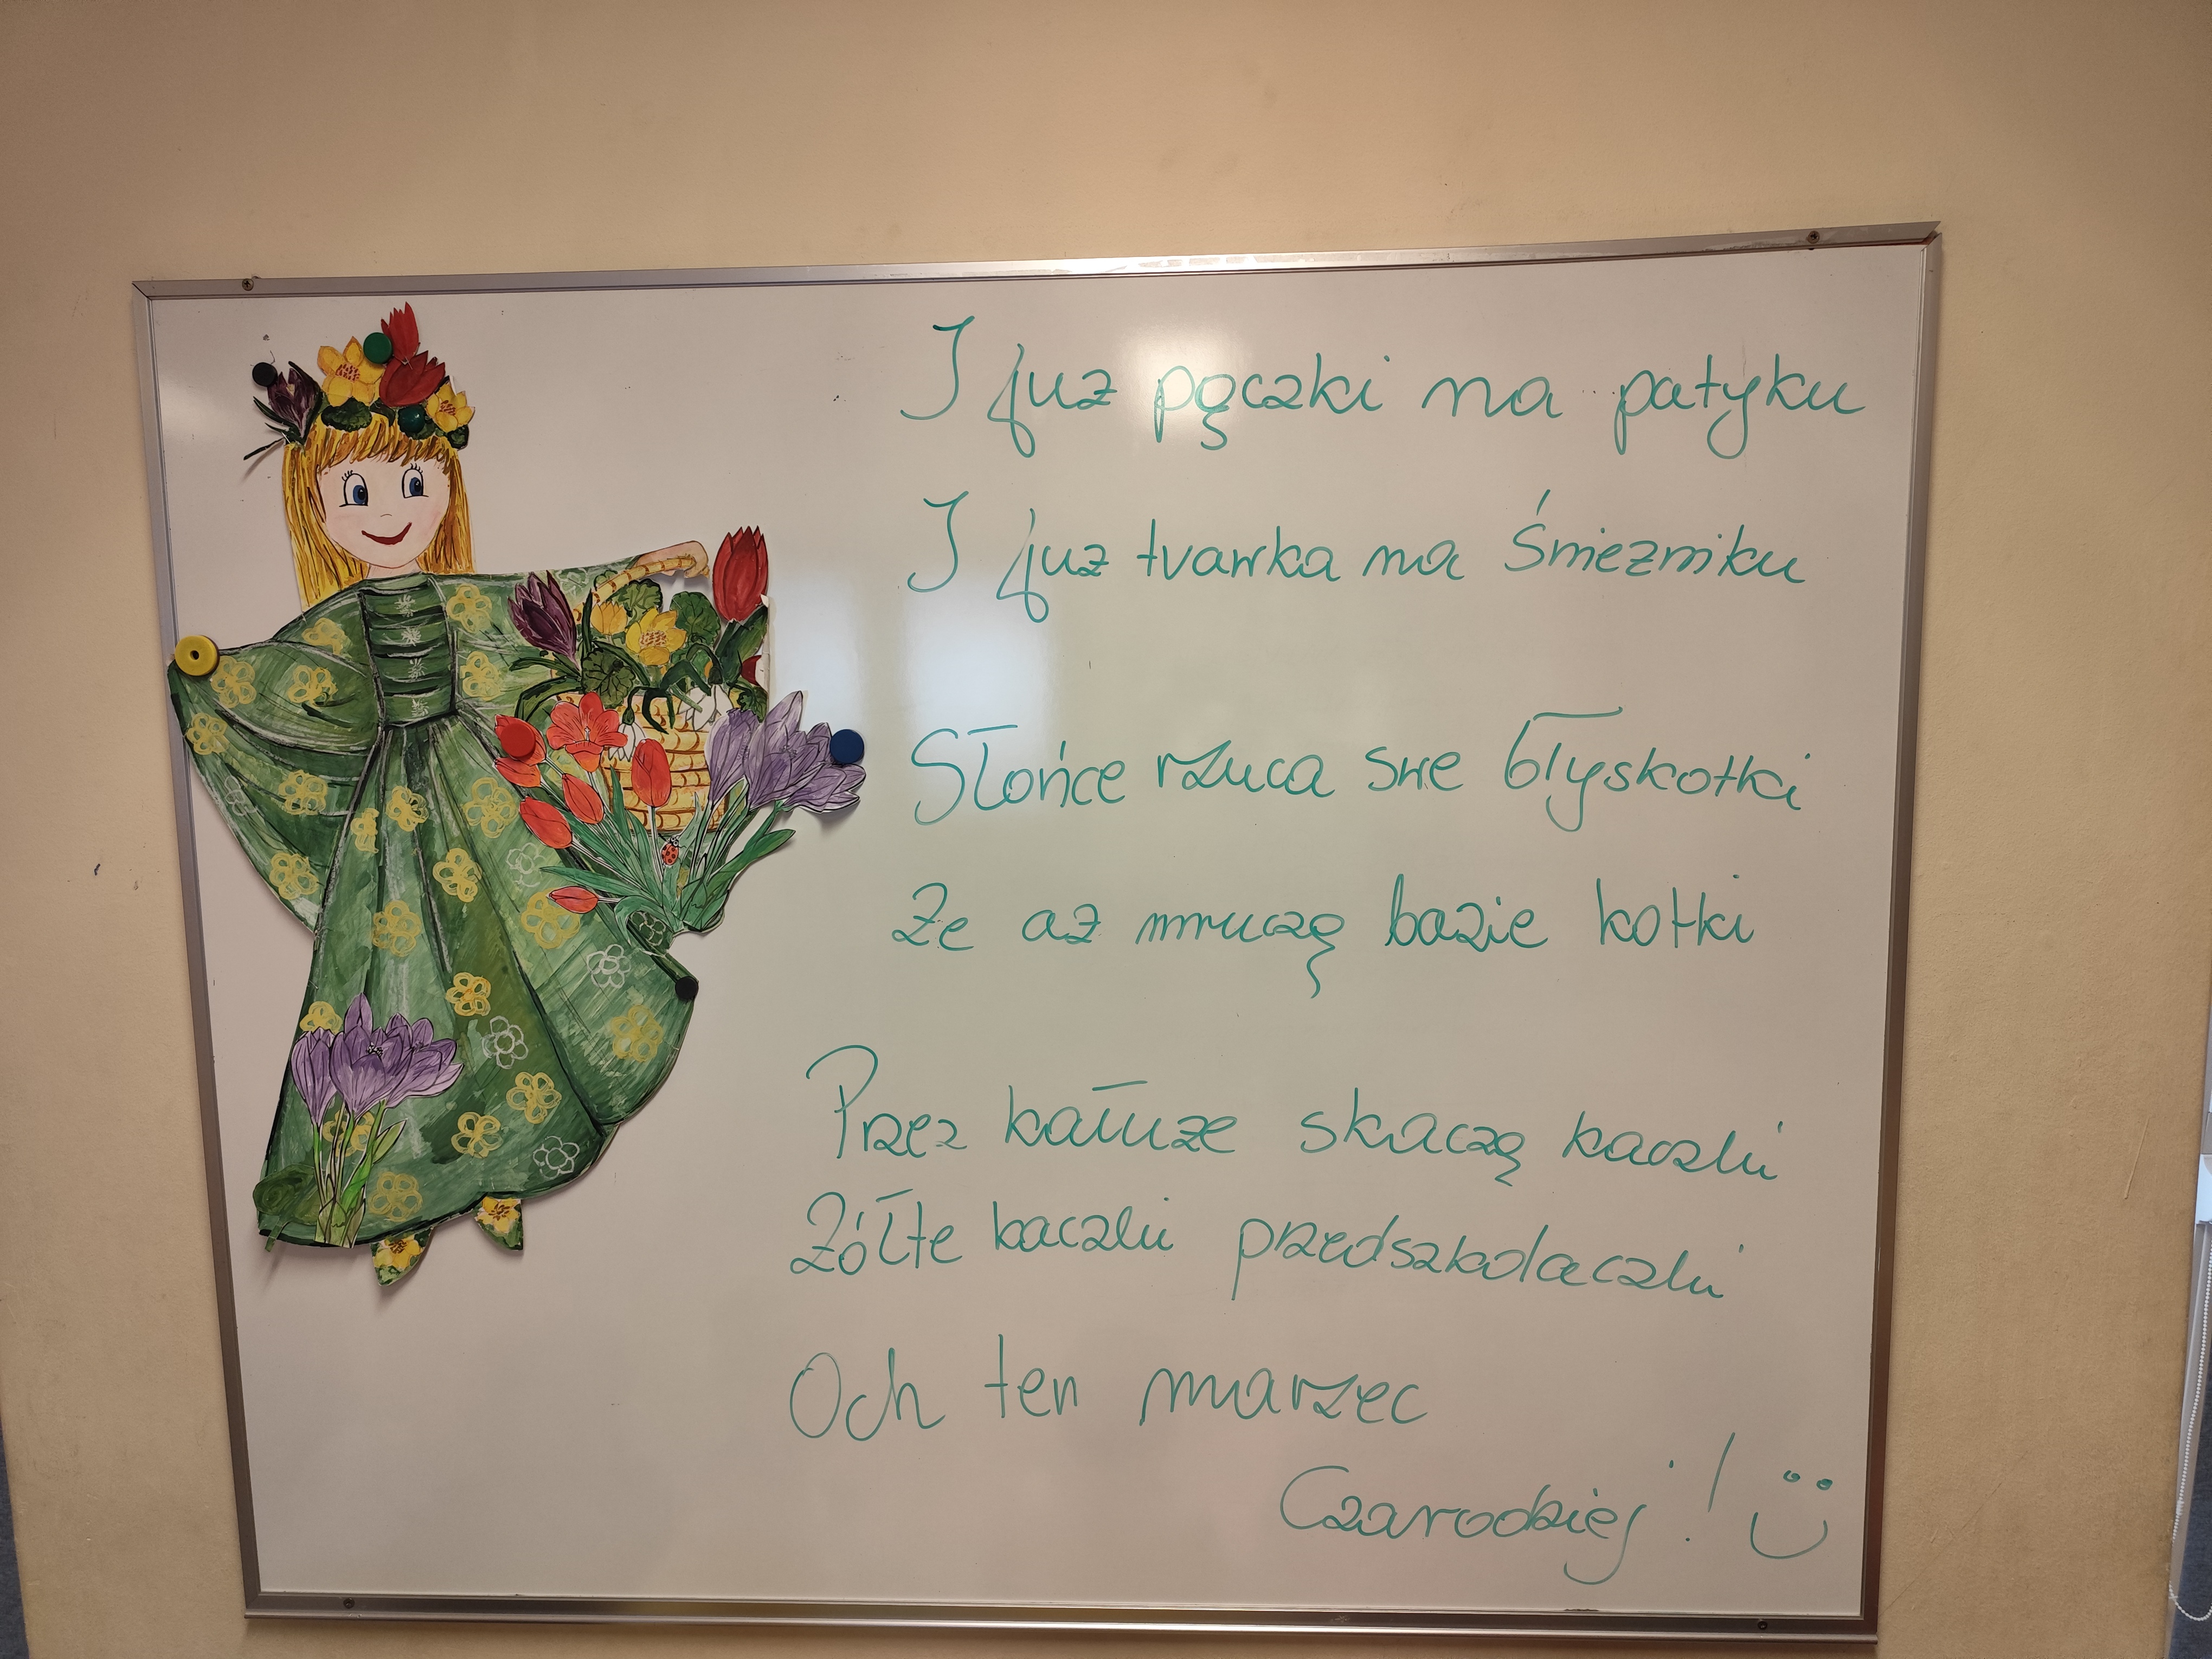 I już pączki na patyku
I już trawka na śnieżniku
Słońce rzuca swe błyskotki
Że aż mruczą bazie kotki
Przez kałuże skaczą kaczki
Żółte kaczki przedszkolaczki
Och ten marzec
Czarodziej!